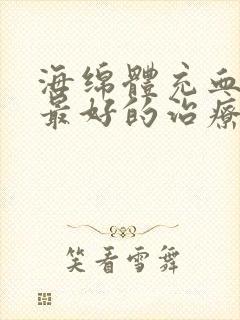 海绵體充血
最好的治療
笑看雪舞